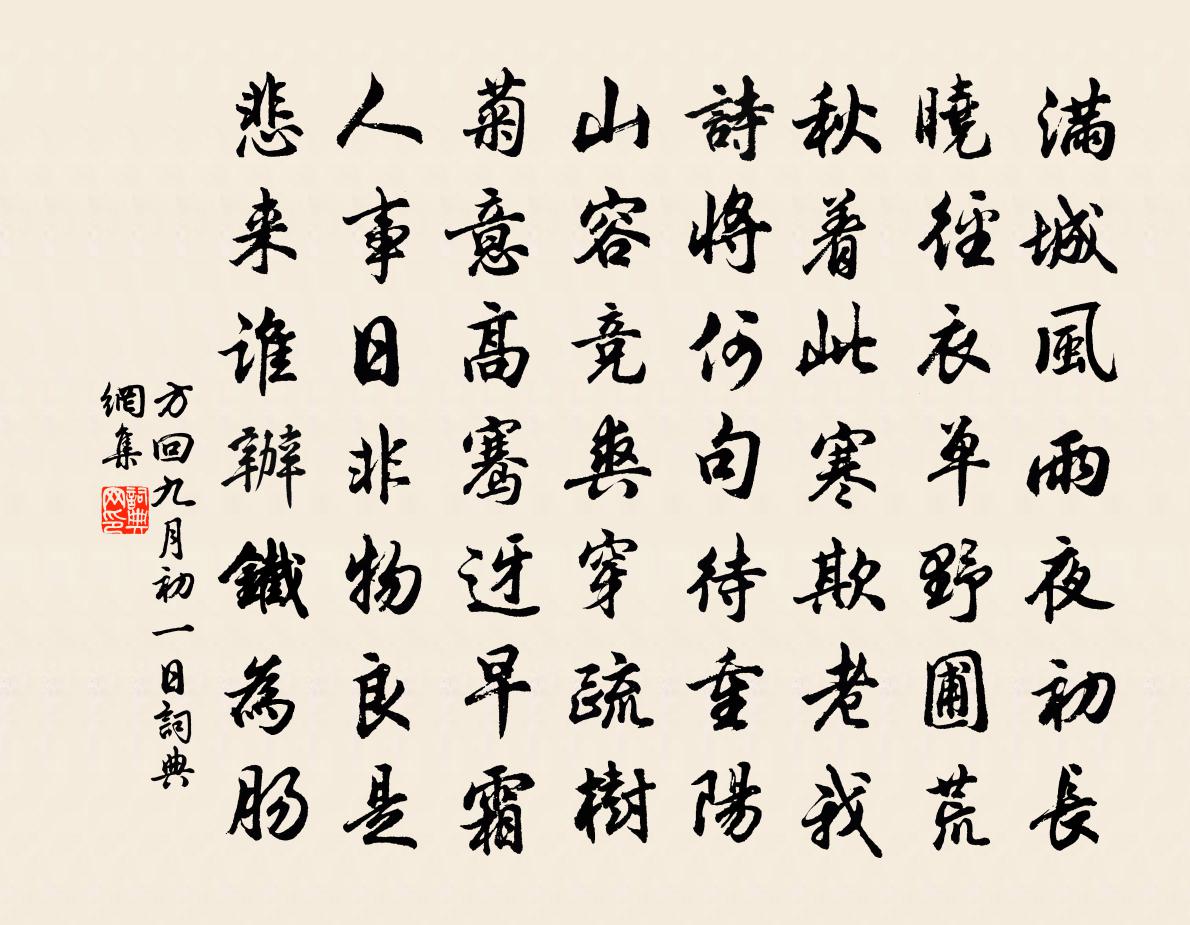 滿城風雨夜初長
曉徑衣单野圃荒
秋着此寒欺老我
詩將何句待重陽
山容竞爽穿疏樹
菊意高騫迓早霜
人事日非物良是
悲来谁辦鐵為肠
方回九月初一日詞典
網集
詞典网印